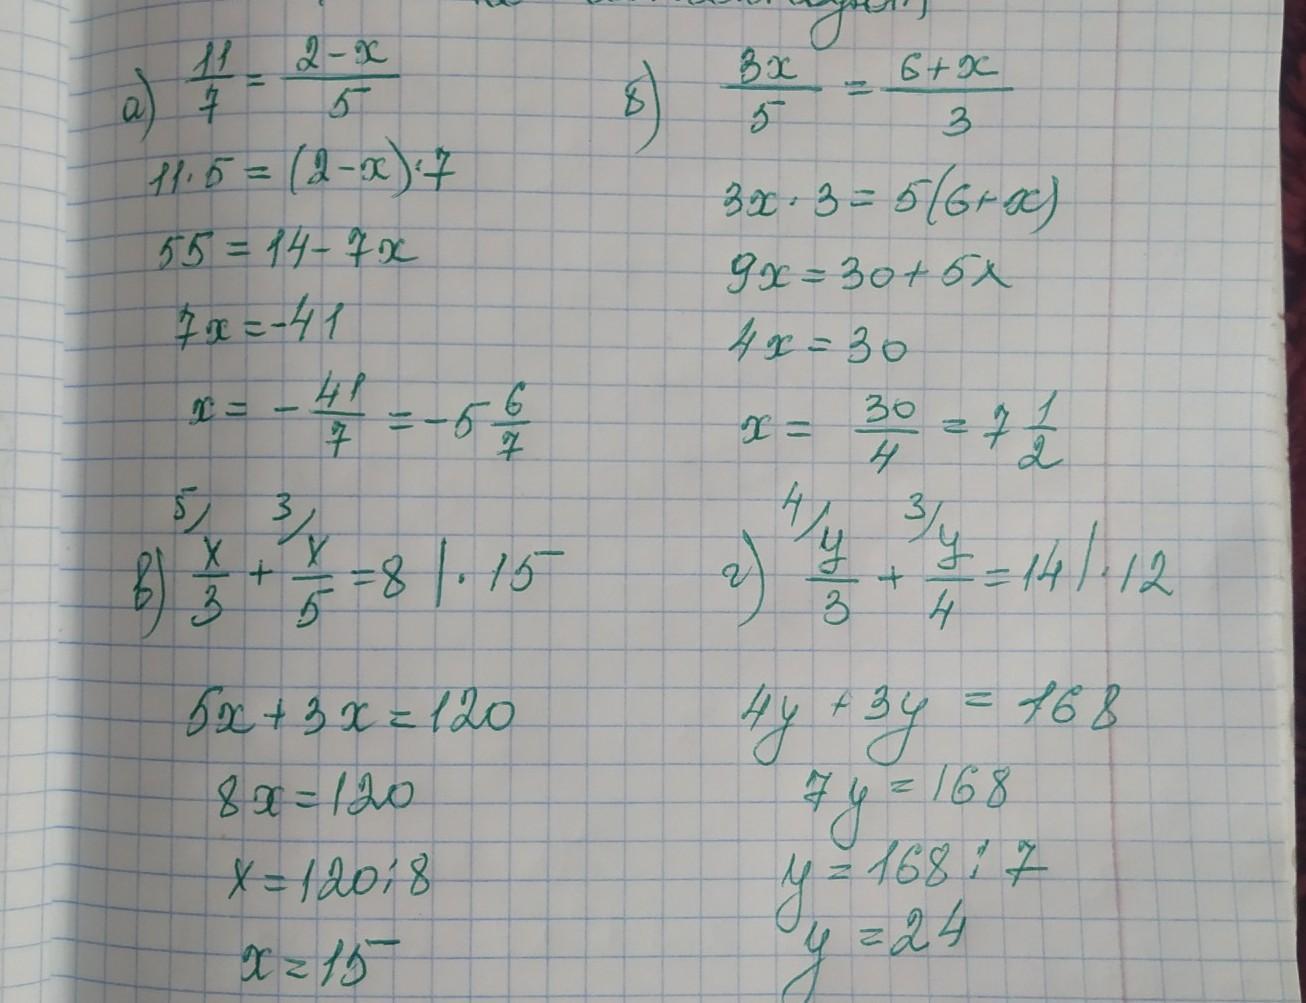 а) 11/7 = (2-x)/5
11·5 = (2-x)·7
55 = 14 - 7x
7x = -41
x = - 41/7 = -5 6/7
б) 3x/5 = (6+x)/3
3x · 3 = 5(6+x)
9x = 30 + 5x
4x = 30
x = 30/4 = 7 1/2
5/ 3/
в) x/3 + x/5 = 8 |· 15
5x + 3x = 120
8x = 120
x = 120:8
x = 15
4/ 3/
г) y/3 + y/4 = 14 |· 12
4y + 3y = 168
7y = 168
y = 168 : 7
y = 24